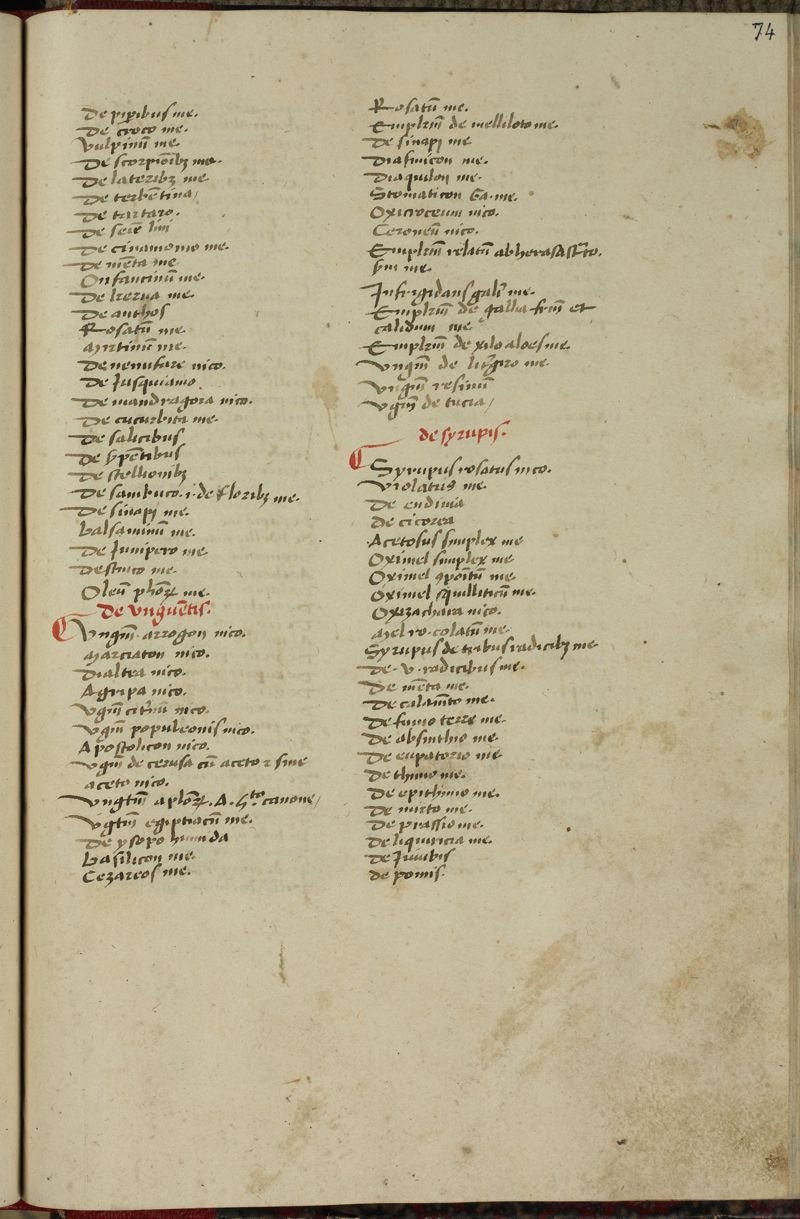 74
De pip̱ibus me.
De croco me.
Vulpinū me.
De scorpiōibꝫ me.
De lateribꝫ me.
De terbētina/
De tartaro.
De seīe lini
De cinamomo me.
De mēta me
Onfancinū me.
De kerua me.
De anthos
Rosatū me.
Mirtinū me.
De nenufare nico.
De Jusquiamo.
De mandragora nico.
De cucurbita me.
De salicibus
De s̄pētibus
De stellionibꝫ
De sambuco .i. de floribꝫ me.
De sinapi me.
balsaminū me.
De Junipero me.
De
Oleū ph̄oꝝ me.
De Vnguētis.
Vngm̄. arrogon nico.
Marciaton nico.
Dialtea nico.
Agripa nico.
Vgm̄ citrinū nico.
Vgm̄ populeonis nico.
Apostolicon nico.
Vgm̄ de cerusa cū aceto ꝛ sine
aceto nico.
Vngtm̄ a ph̄oꝝ. A. canone/
Vgtm̄ egiptiacū me.
De ysopo humida
basilicon me.
Cezareos me.
Rosatū me.
Emplm̄ de melliloto me.
De sinapi me
Diafinicon me.
Diaquilon me.
Stomaticon Ga. me.
Oxicroceum nico.
Ceroneū nico.
Emplm̄ relatū ab
me.
Infrigidans gali me.
Emplm̄ de gallia frim̄ et
calidum me
Emplm̄ de xilo aloes me.
Vngm̄ de me.
Vngm̄ resinū
Vgm̄ de tucia/
de syrupis.
Syrupus rosatus nico.
Violatus me.
De endiuia
De cicorea
Acetosus simplex me
Oximel simplex me
Oximel ꝯpoītū me.
Oximel squilliticū me.
Oxizachara nico.
Mel ro. colatū me.
Syrupus de tribus radicibꝫ me
De .v. radicibus me.
De mēta me.
De calamto me.
De fumo terre me.
De absinthio me.
De eupatorio me
De thimo me.
De epithimo me.
De mirto me.
De prassio me.
De liquiricia me.
De Juiubis
de pomis.